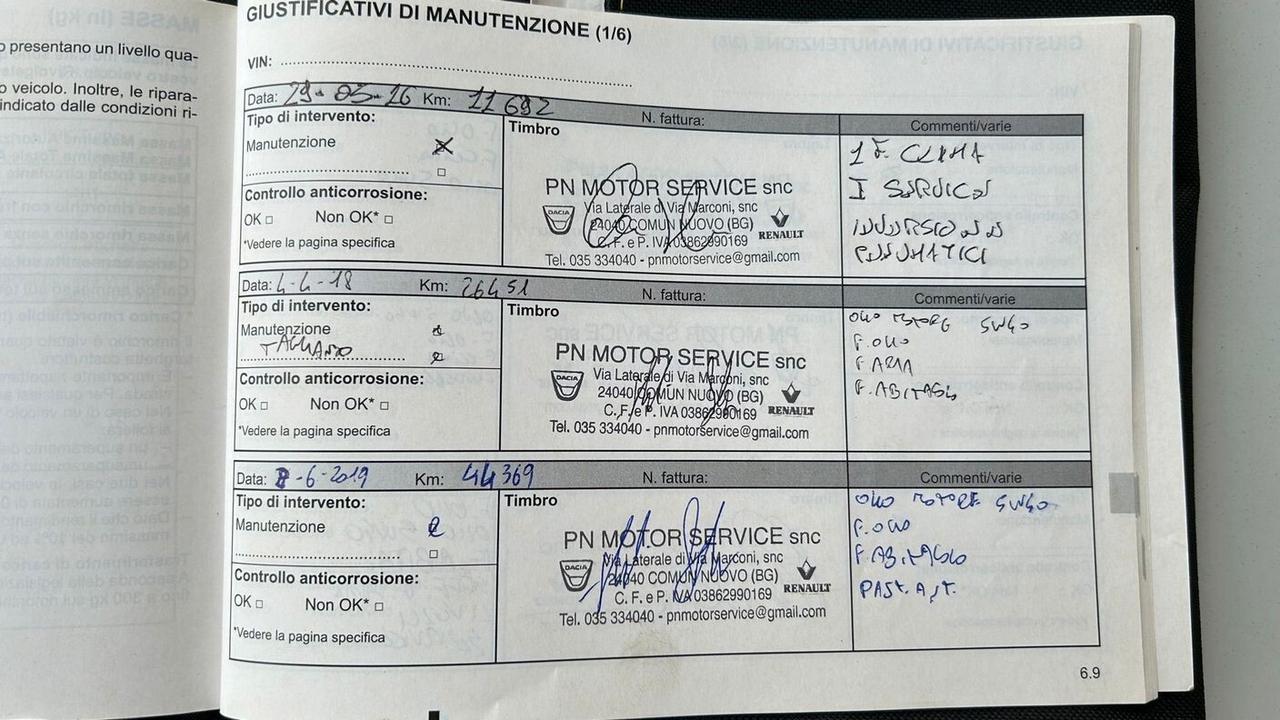 o presentano un livello qua-
o veicolo. Inoltre, le ripara-
indicato dalle condizioni ri-
GIUSTIFICATIVI DI MANUTENZIONE (1/6)
VIN:
Data: 29-03-16 Km: 11692 N. fattura: Commenti/varie
Tipo di intervento:
Timbro
Manutenzione
Controllo anticorrosione:
OK □ Non OK* □
*Vedere la pagina specifica
PN MOTOR SERVICE snc
Via Laterale di Via Marconi, snc
24040 COMUN NUOVO (BG)
C. F. e P. IVA 03862990169
Tel. 035 334040 - pnmotorservice@gmail.com
DACIA
RENAULT
1 F. CLIMA
I SERVICE
INVERSIONE
PNEUMATICI
Data: 4-4-18 Km: 26451 N. fattura: Commenti/varie
Tipo di intervento:
Timbro
Manutenzione
TAGLIANDO
Controllo anticorrosione:
OK □ Non OK* □
*Vedere la pagina specifica
PN MOTOR SERVICE snc
Via Laterale di Via Marconi, snc
24040 COMUN NUOVO (BG)
C. F. e P. IVA 03862990169
Tel. 035 334040 - pnmotorservice@gmail.com
DACIA
RENAULT
OLIO MOTORE 5W40
F. OLIO
F. ARIA
F. ABITACOLO
Data: 8-6-2019 Km: 44369 N. fattura: Commenti/varie
Tipo di intervento:
Timbro
Manutenzione
Controllo anticorrosione:
OK □ Non OK* □
*Vedere la pagina specifica
PN MOTOR SERVICE snc
Via Laterale di Via Marconi, snc
24040 COMUN NUOVO (BG)
C. F. e P. IVA 03862990169
Tel. 035 334040 - pnmotorservice@gmail.com
DACIA
RENAULT
OLIO MOTORE 5W40
F. OLIO
F. ABITACOLO
PAST. ANT.
6.9